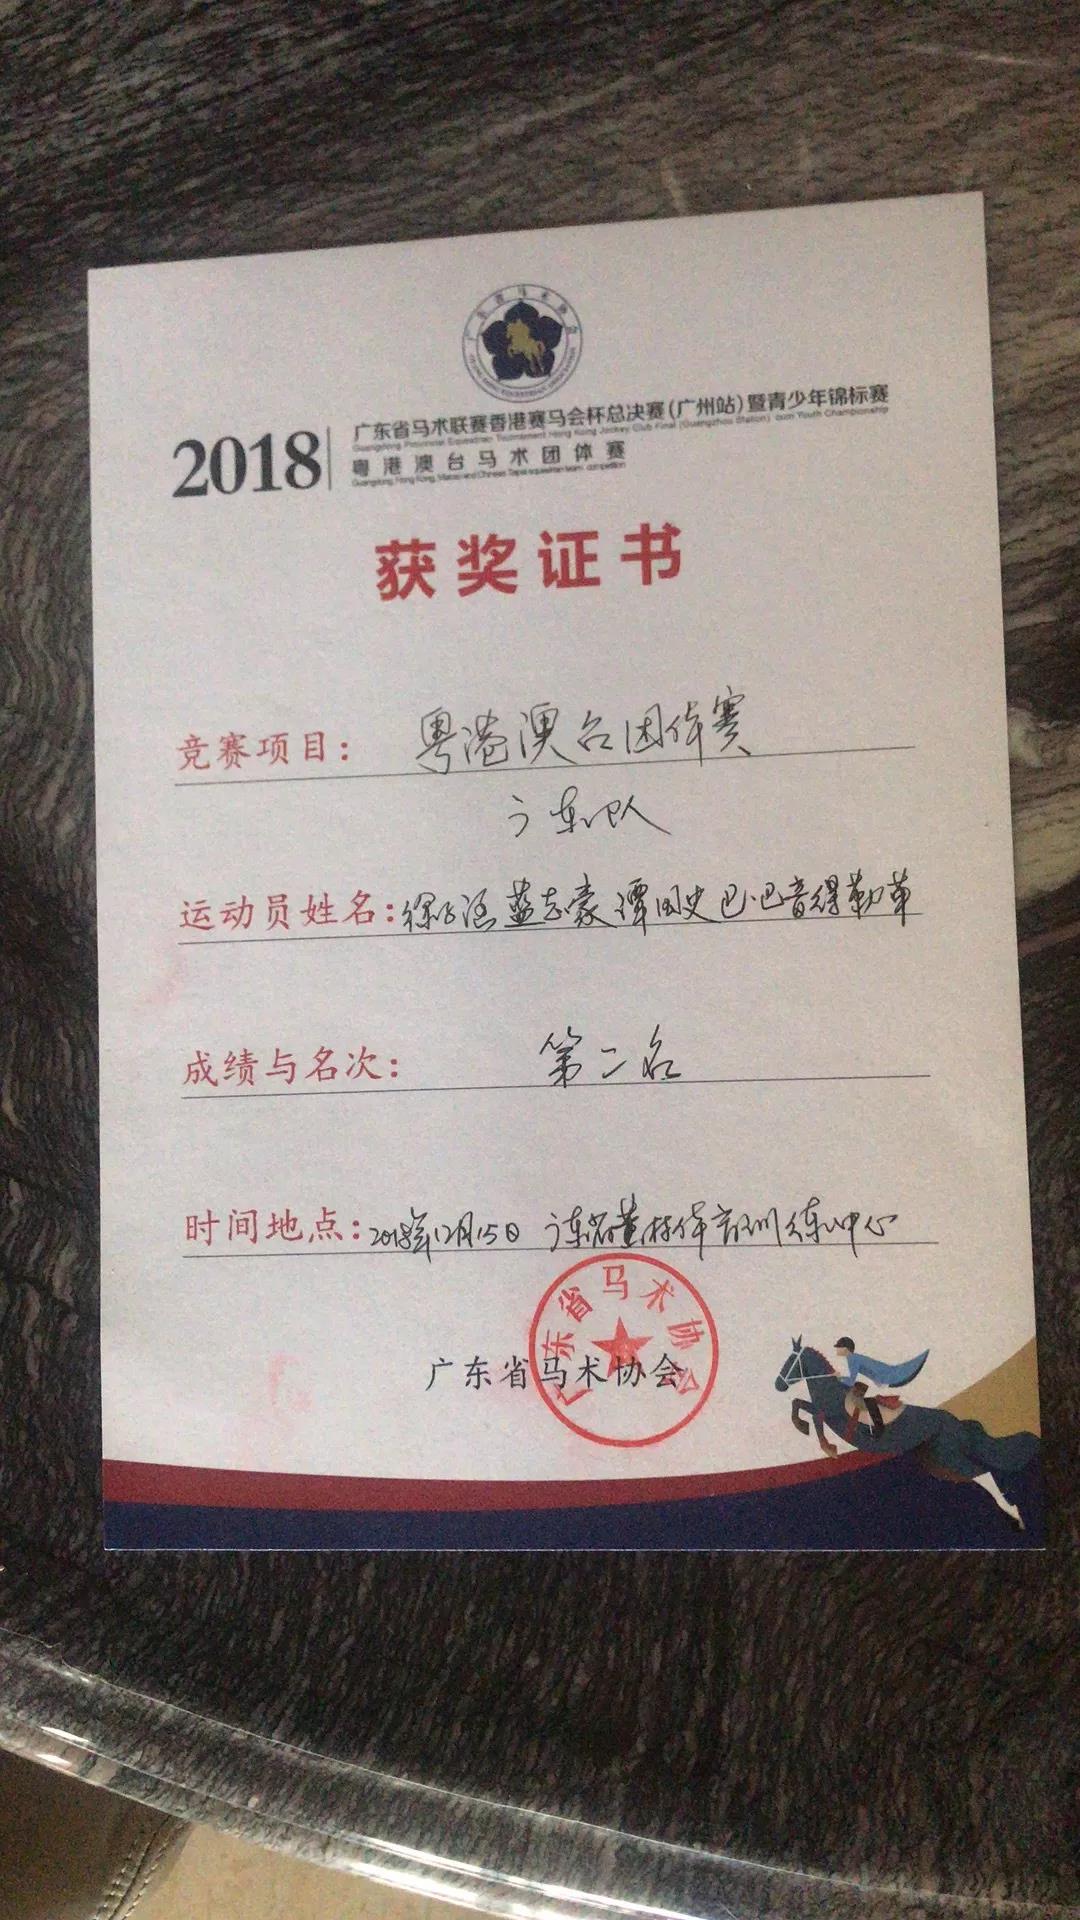 广东省马术协会
2018
广东省马术联赛香港赛马会杯总决赛(广州站)暨青少年锦标赛
Guangdong Provincial Equestrian Tournament Hong Kong Jockey Club Final (Guangzhou Station) cum Youth Championship
粤港澳台马术团体赛
Guangdong, Hong Kong, Macao and Chinese Taipei equestrian team competition
获奖证书
竞赛项目: 粤港澳台团体赛
广东队
运动员姓名: 徐子涵 蓝志豪 谭国史 巴·巴音得勒革
成绩与名次: 第二名
时间地点: 2018年12月15日 广东省黄村体育训练中心
广东省马术协会
广东省马术协会